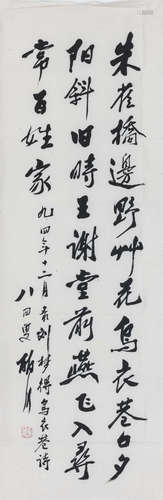 朱雀橋邊野艸花烏衣巷口夕
阳斜旧時王謝堂前燕飞入尋
常百姓家 九四年十二月录刘梦得烏衣巷诗
八四叟